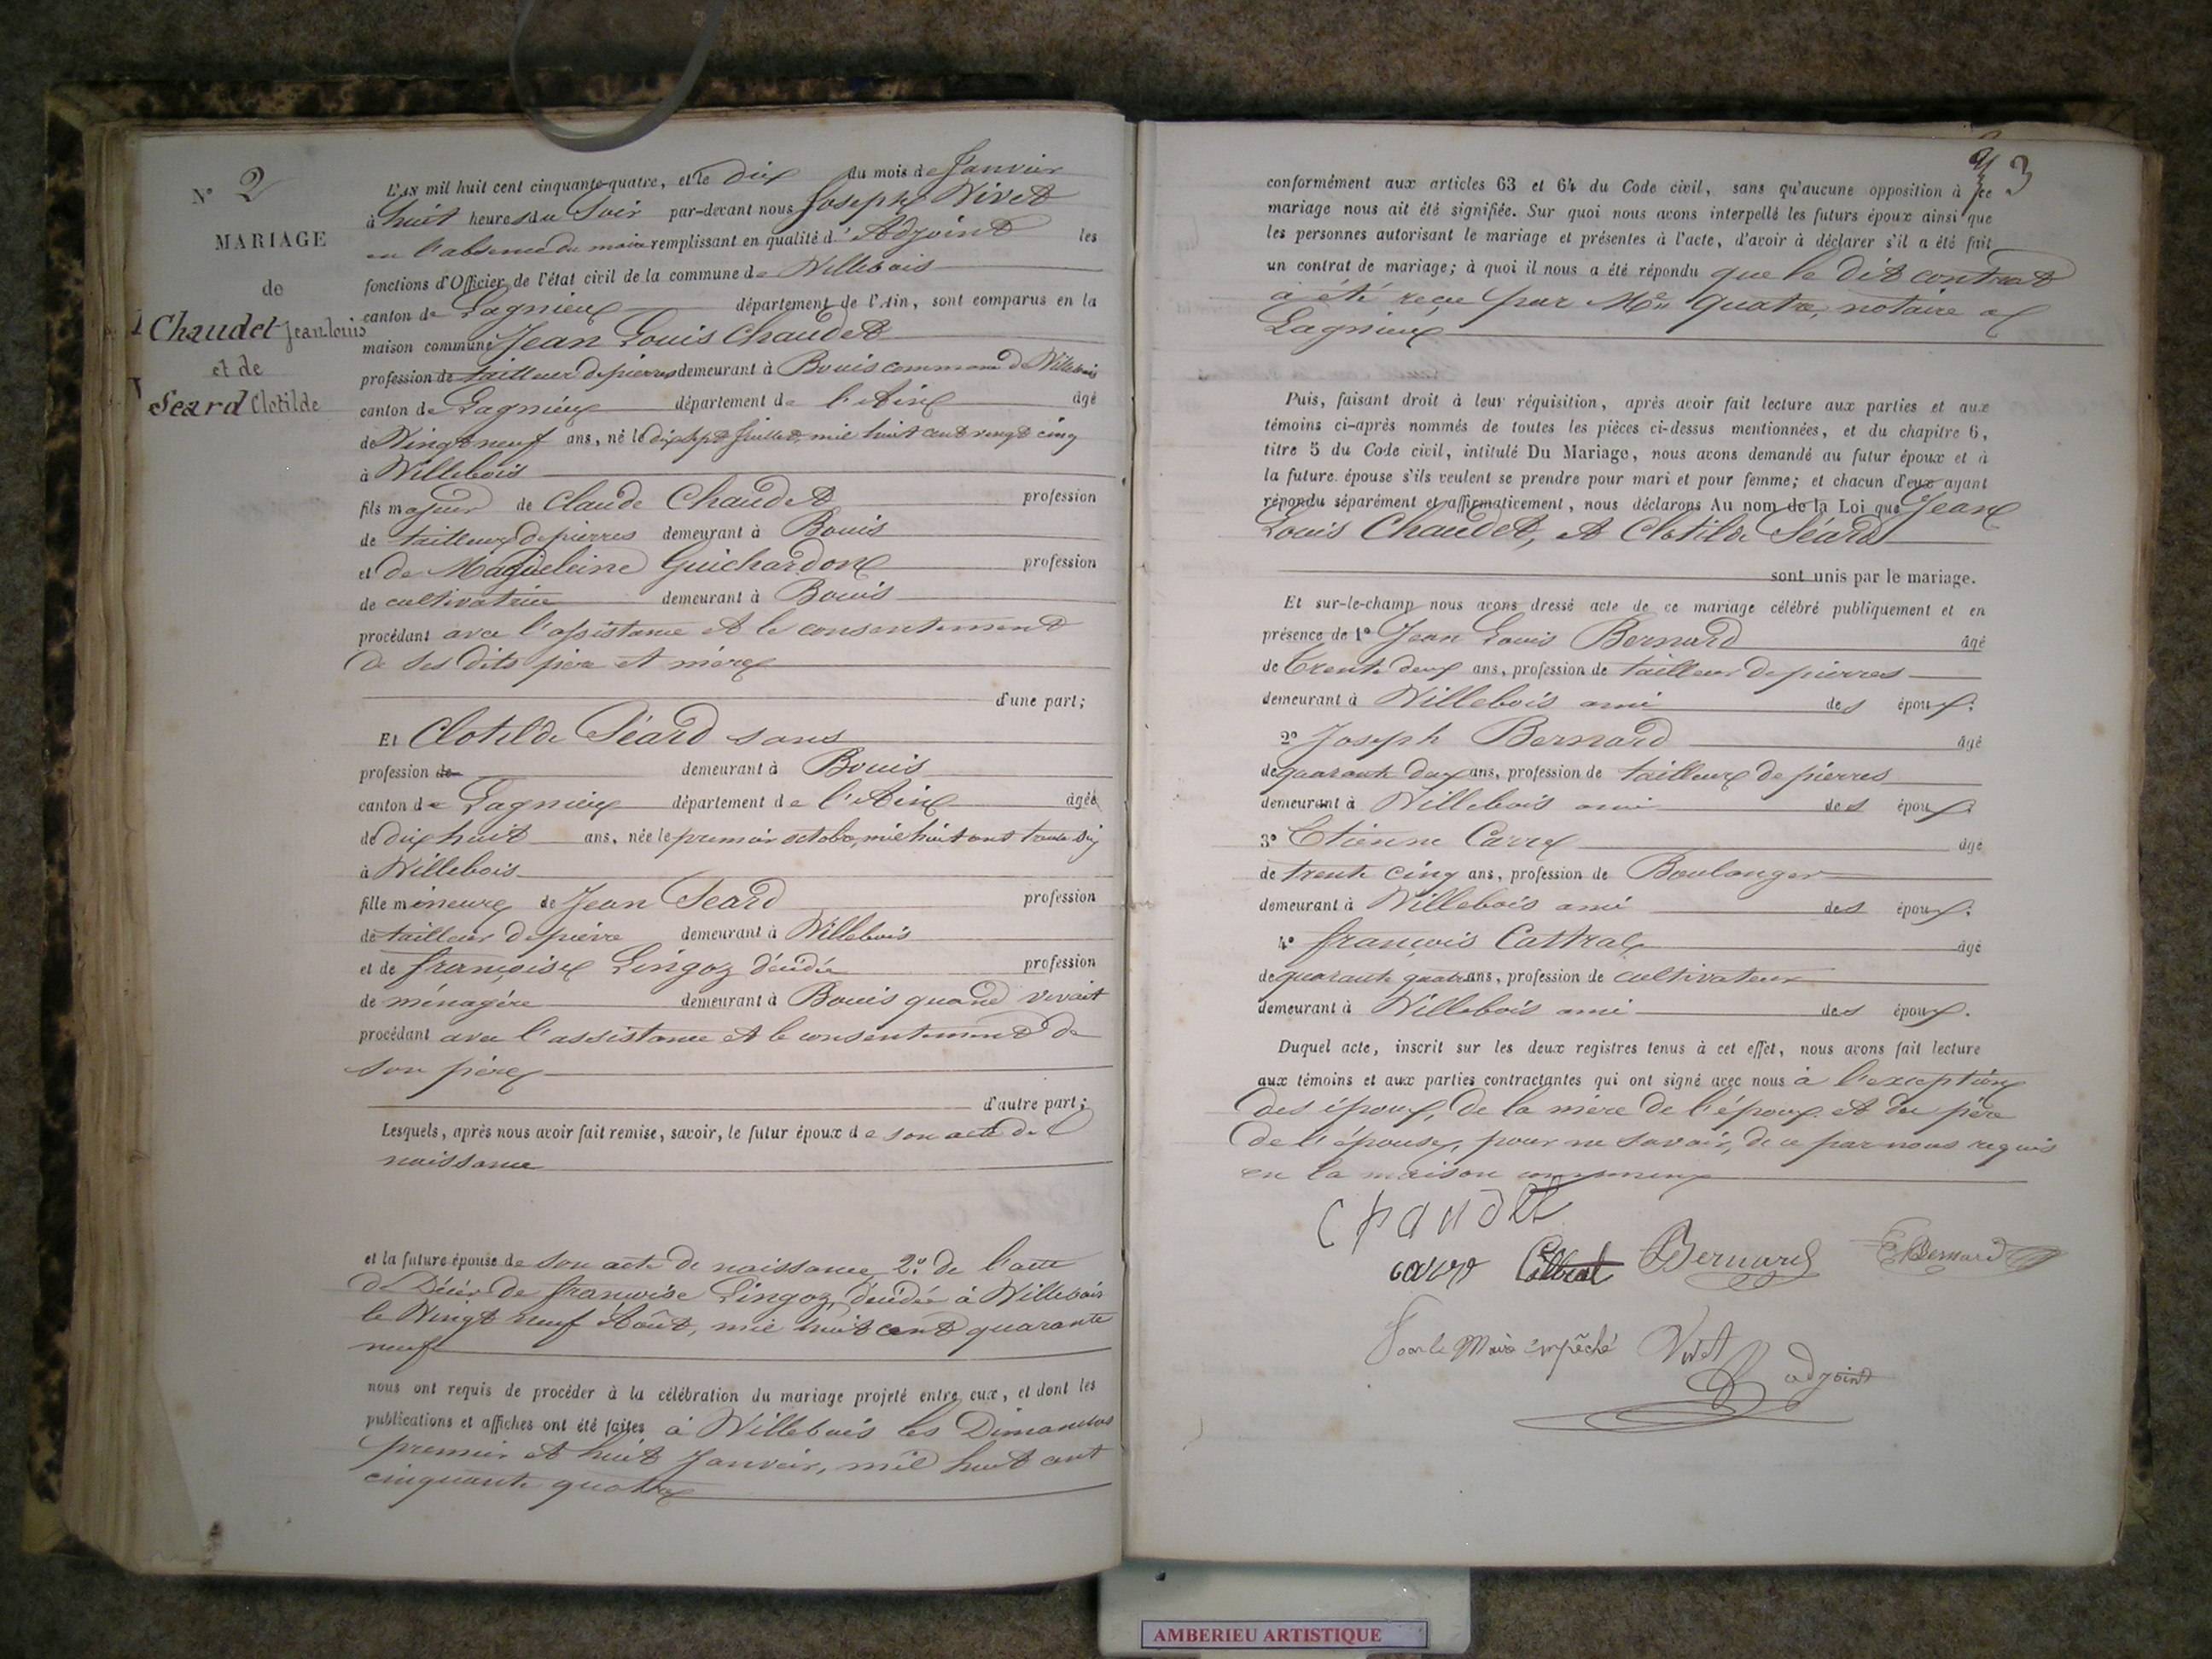 N° 2
MARIAGE
de
Chaudet Jean Louis
et de
Seard Clotilde
L'AN mil huit cent cinquante-quatre, et le dix du mois de Janvier
à huit heures du Soir par-devant nous Joseph Vivet
en l'absence du maire remplissant en qualité d'Adjoint les
fonctions d'Officier de l'état civil de la commune de Villebois
canton de Lagnieux département de l'Ain, sont comparus en la
maison commune Jean Louis Chaudet
profession de tailleur de pierres demeurant à Bouis commune de Villebois
canton de Lagnieux département de l'Ain âgé
de Vingt neuf ans, né le dix sept Juillet, mil huit cent vingt cinq
à Villebois
fils majeur de Claude Chaudet profession
de tailleur de pierres demeurant à Bouis
et de Magdeleine Guichardon profession
de cultivatrice demeurant à Bouis
procédant avec l'assistance et le consentement
de ses dits père et mère
d'une part;
Et Clotilde Séard sans
profession de demeurant à Bouis
canton de Lagnieux département de l'Ain âgée
de dix huit ans, née le premier octobre, mil huit cent trente six
à Villebois
fille mineure de Jean Seard profession
de tailleur de pierre demeurant à Villebois
et de françoise Lingoz décédée profession
de ménagère demeurant à Bouis quand vivait
procédant avec l'assistance et le consentement de
son père
d'autre part;
Lesquels, après nous avoir fait remise, savoir, le futur époux de son acte de
naissance
et la future épouse de son acte de naissance 2° de l'acte
de Décès de françoise Lingoz, décédée à Villebois
le Vingt neuf Août, mil huit cent quarante
neuf
nous ont requis de procéder à la célébration du mariage projeté entre eux, et dont les
publications et affiches ont été faites à Villebois les Dimanches
premier et huit Janvier, mil huit cent
cinquante quatre
3
conformément aux articles 63 et 64 du Code civil, sans qu'aucune opposition à ce
mariage nous ait été signifiée. Sur quoi nous avons interpellé les futurs époux ainsi que
les personnes autorisant le mariage et présentes à l'acte, d'avoir à déclarer s'il a été fait
un contrat de mariage; à quoi il nous a été répondu que le dit contrat
a été reçu par Me Quatre, notaire a
Lagnieux
Puis, faisant droit à leur réquisition, après avoir fait lecture aux parties et aux
témoins ci-après nommés de toutes les pièces ci-dessus mentionnées, et du chapitre 6,
titre 5 du Code civil, intitulé Du Mariage, nous avons demandé au futur époux et à
la future épouse s'ils veulent se prendre pour mari et pour femme; et chacun d'eux ayant
répondu séparément et affirmativement, nous déclarons Au nom de la Loi que Jean
Louis Chaudet, et Clotilde Séard
sont unis par le mariage.
Et sur-le-champ nous avons dressé acte de ce mariage célébré publiquement et en
présence de 1° Jean Louis Bernard âgé
de trente deux ans, profession de tailleur de pierres
demeurant à Villebois ami des époux.
2° Joseph Bernard âgé
de quarante deux ans, profession de tailleur de pierres
demeurant à Villebois ami des époux
3° Etienne Carre âgé
de trente cinq ans, profession de Boulanger
demeurant à Villebois ami des époux.
4° françois Cattral âgé
de quarante quatre ans, profession de cultivateur
demeurant à Villebois ami des époux.
Duquel acte, inscrit sur les deux registres tenus à cet effet, nous avons fait lecture
aux témoins et aux parties contractantes qui ont signé avec nous à l'exception
des époux, de la mère de l'époux et du père
de l'épouse, pour ne savoir, de ce par nous requis
en la maison commune
Chaudet
carre Bernard Bernard
Pour le Maire empêché Vivet
adjoint
AMBERIEU ARTISTIQUE